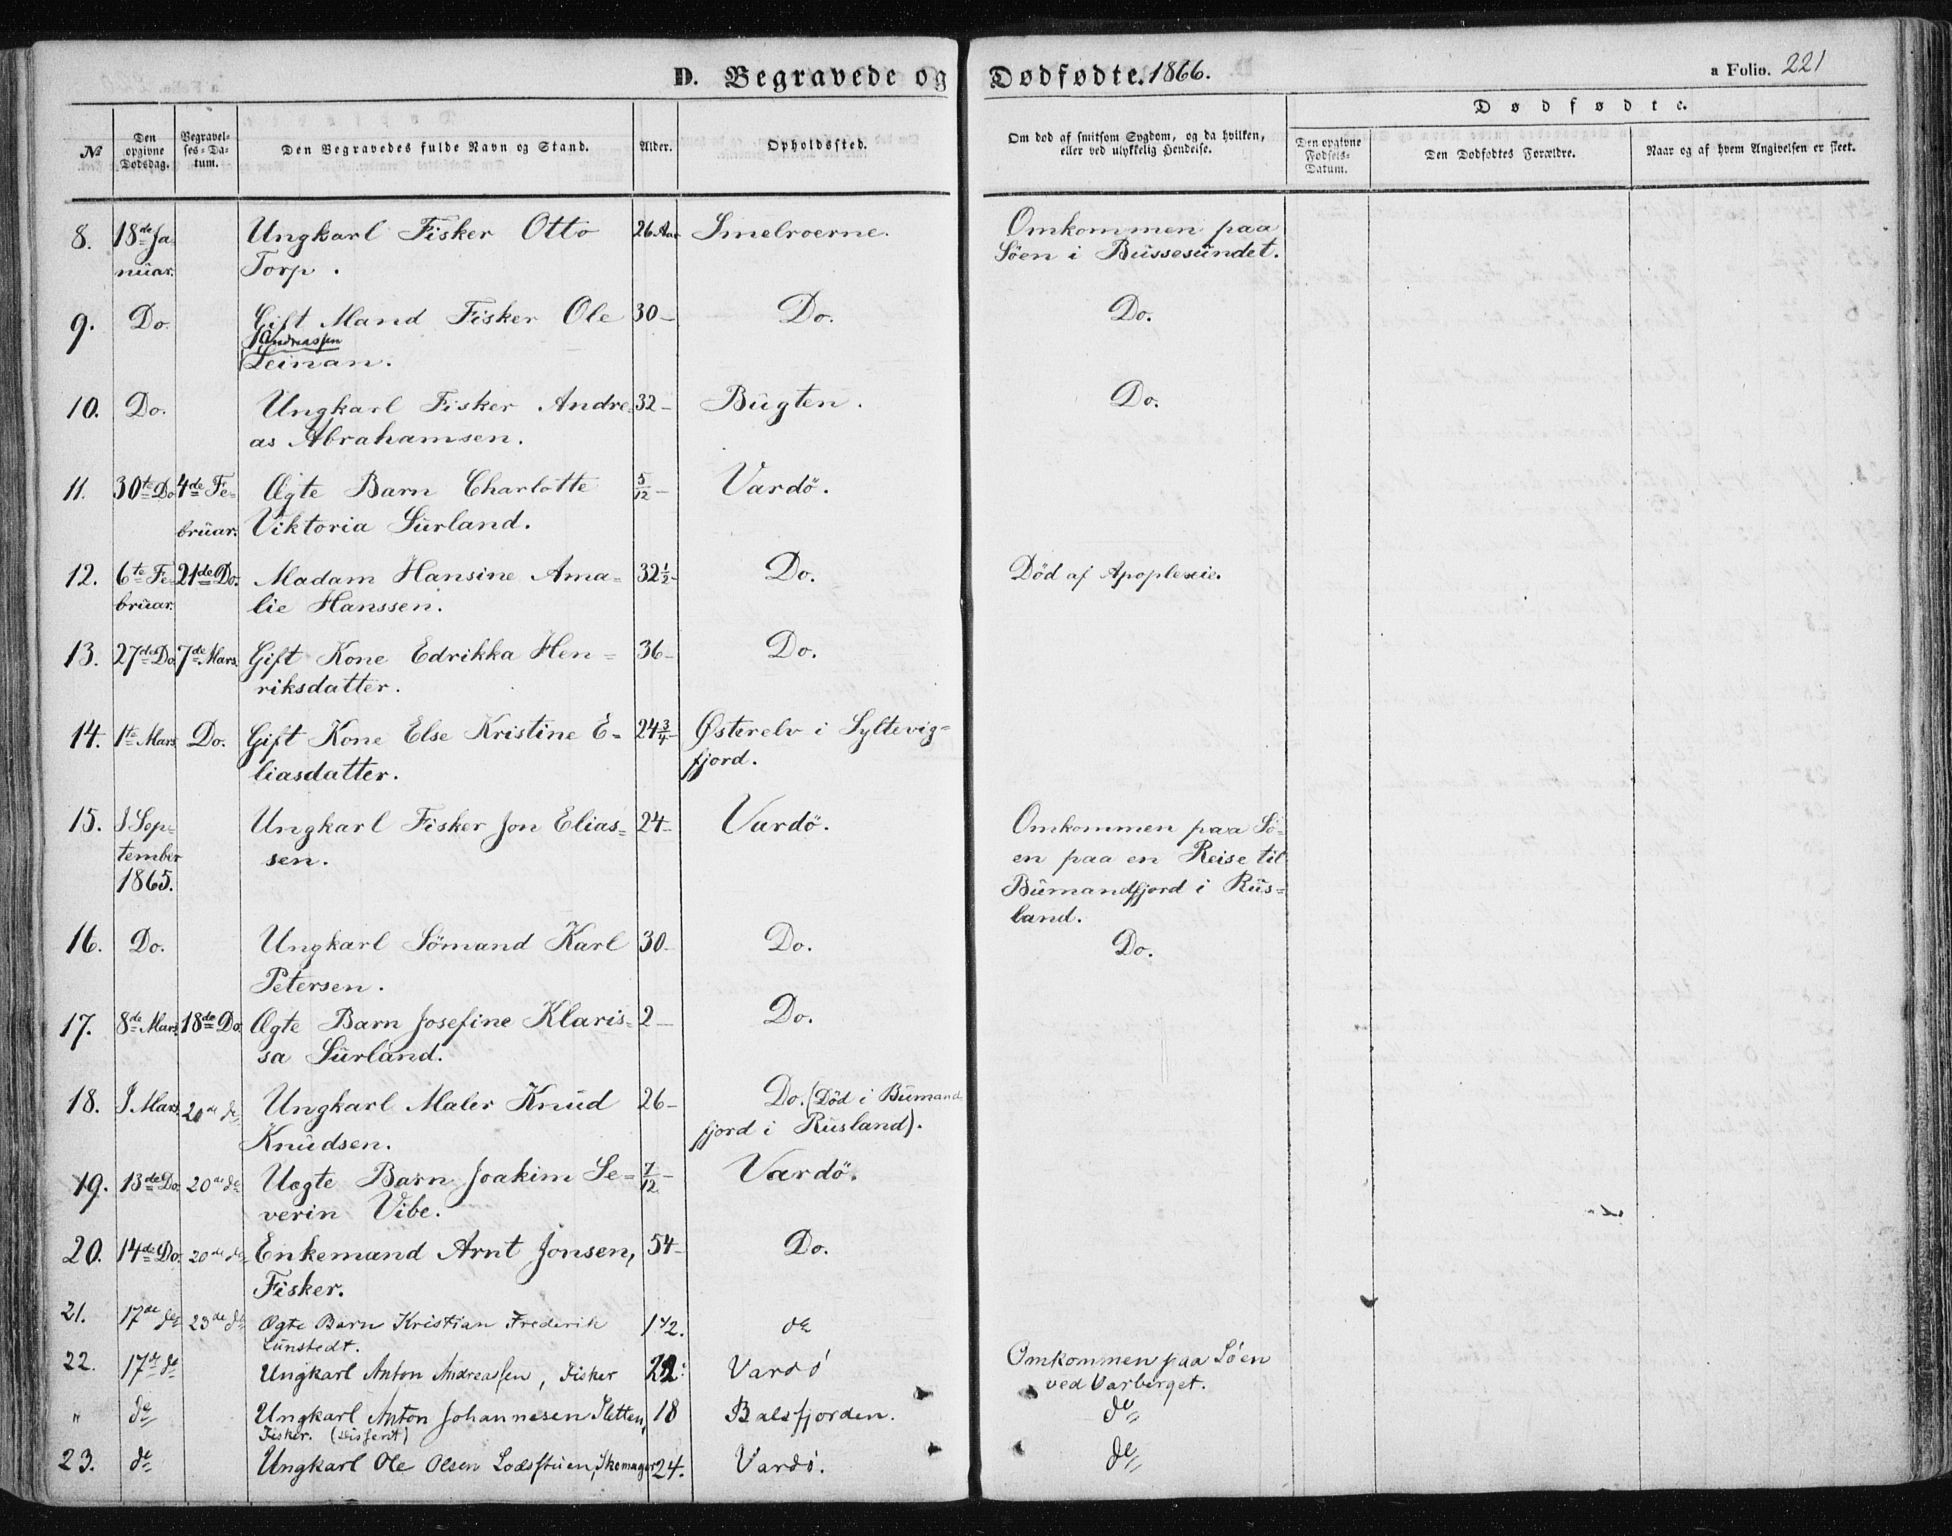 D. Begravede og Dødfødte. 1866.
a Folio. 221
Dødfødte.
No
Den opgivne Dødsdag.
Begravelses-Datum.
Den Begravedes fulde Navn og Stand.
Alder.
Opholdssted.
Om død af smitsom Sygdom, og da hvilken, eller ved ulykkelig Hendelse.
Den opgivne Fødsels-Datum.
Den Dødfødtes Forældre.
Naar og af hvem Angivelsen er skeet.
8. 18de Ja- Ungkarl Fisker Otto 26 Aar Smelroerne. Omkommen paa
nüar. Torp. Söen i Büssesündet.
9. Do. Gift Mand Fisker Ole 30- Do. Do.
Andreassen
Leinan.
10. Do. Ungkarl Fisker Andre- 32- Bügten. Do.
as Abrahamsen.
11. 30te Do 4de Fe- Ægte Barn Charlotte 5/12- Vardö.
brüar. Viktoria Sürland.
12. 6te Fe- 21de Do. Madam Hansine Ama- 32 1/2- Do. Död af Apoplexie.
brüar. lie Hanssen.
13. 27de Do. 7de Mars. Gift Kone Edrikka Hen- 36- Do.
riksdatter.
14. 1te Mars. Do. Gift Kone Else Kristine E- 24 3/4- Østerelv i Syltevig-
liasdatter. fjord.
15. I Sep- Ungkarl Fisker Jon Elias- 24- Vardö. Omkommen paa Sö-
tember sen. en paa en Reise til
1865. Bümandfjord i Rüs-
land.
16. Do. Ungkarl Sömand Karl 30- Do. Do.
Petersen.
17. 8de Mars. 18de Do. Ægte Barn Josefine Klaris- 2- Do.
sa Sürland.
18. I Mars. 20de do Ungkarl Maler Knüd 26- Do. (Död i Bümand
Knüdsen. fjord i Rüsland).
19. 13de Do. 20de do Uægte Barn Joakim Se- 7/12- Vardö.
verin Vibe.
20. 14de Do. 20de do Enkemand Arnt Jonsen, 54- Do.
Fisker.
21. 17de do 23de do Ægte Barn Kristian Frederik 1 1/2. do
Lünstedt.
22. 17de do Ungkarl Anton Andreassen, Fisker 22: Vardö Omkommen paa Söen
ved Varberget.
" do Ungkarl Anton Johannesen Sletten, 18 Balsfjorden. do
Fisker. (Dissent)
23. do Ungkarl Ole Olsen Lodsstüen, Skomager 24. Vardö. do